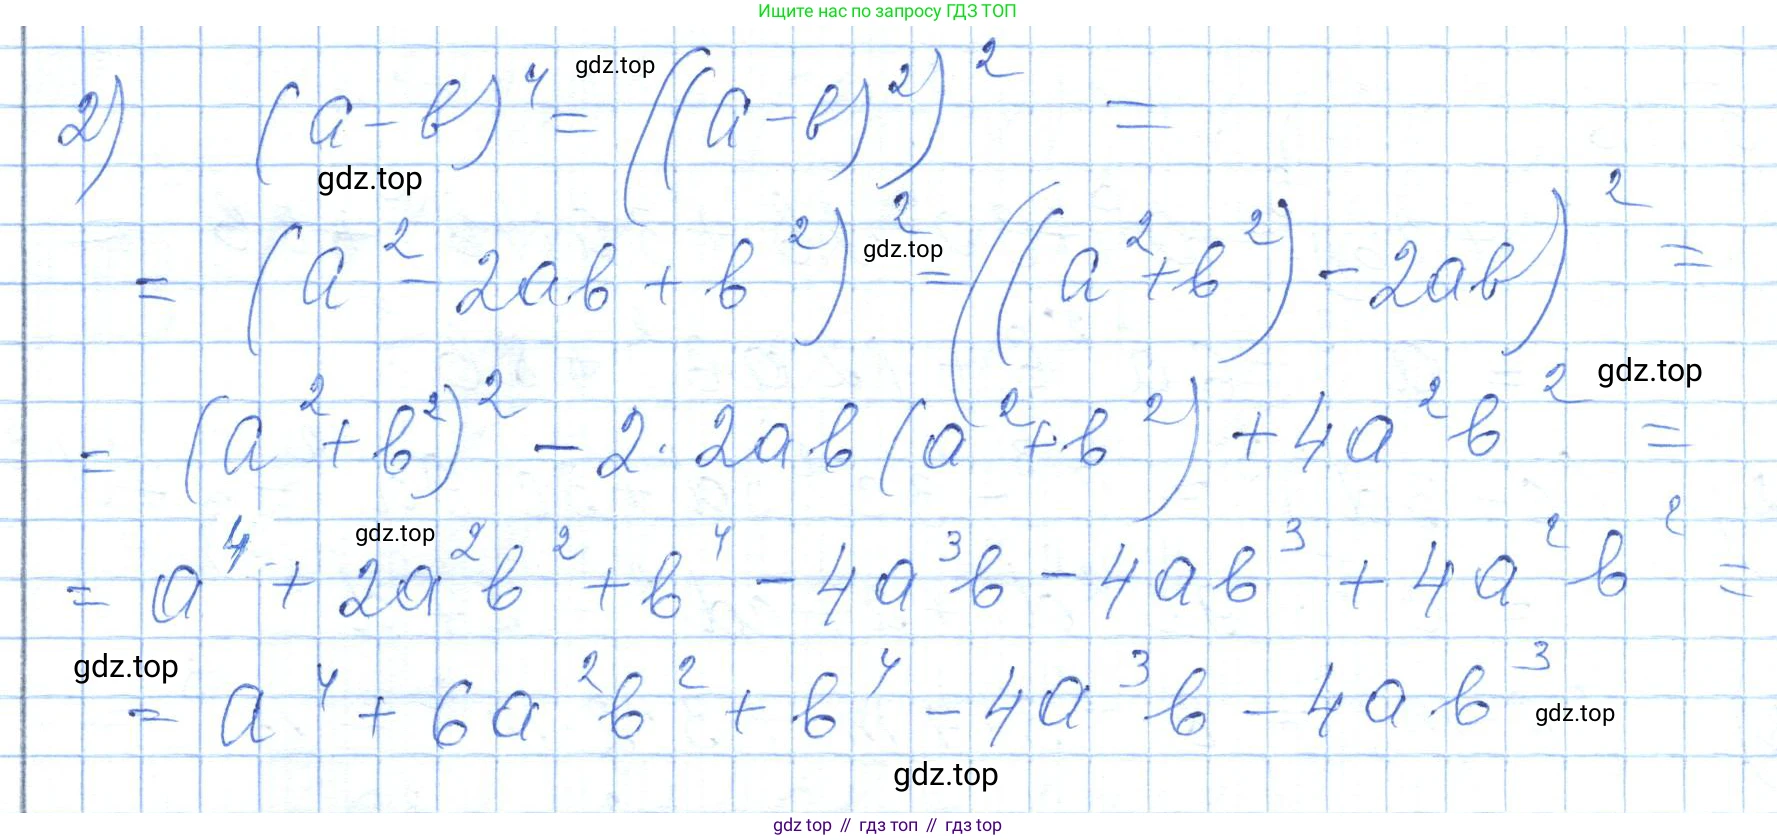 Ищите нас по запросу ГДЗ ТОП
2) (a - b)⁴ = ((a - b)²)² =
gdz.top
gdz.top
= (a² - 2ab + b²)² = ((a² + b²) - 2ab)² =
gdz.top
gdz.top
= (a² + b²)² - 2 · 2ab (a² + b²) + 4a²b² =
gdz.top
= a⁴ + 2a²b² + b⁴ - 4a³b - 4ab³ + 4a²b² =
gdz.top
= a⁴ + 6a²b² + b⁴ - 4a³b - 4ab³
gdz.top
gdz.top
gdz top // гдз топ // гдз top